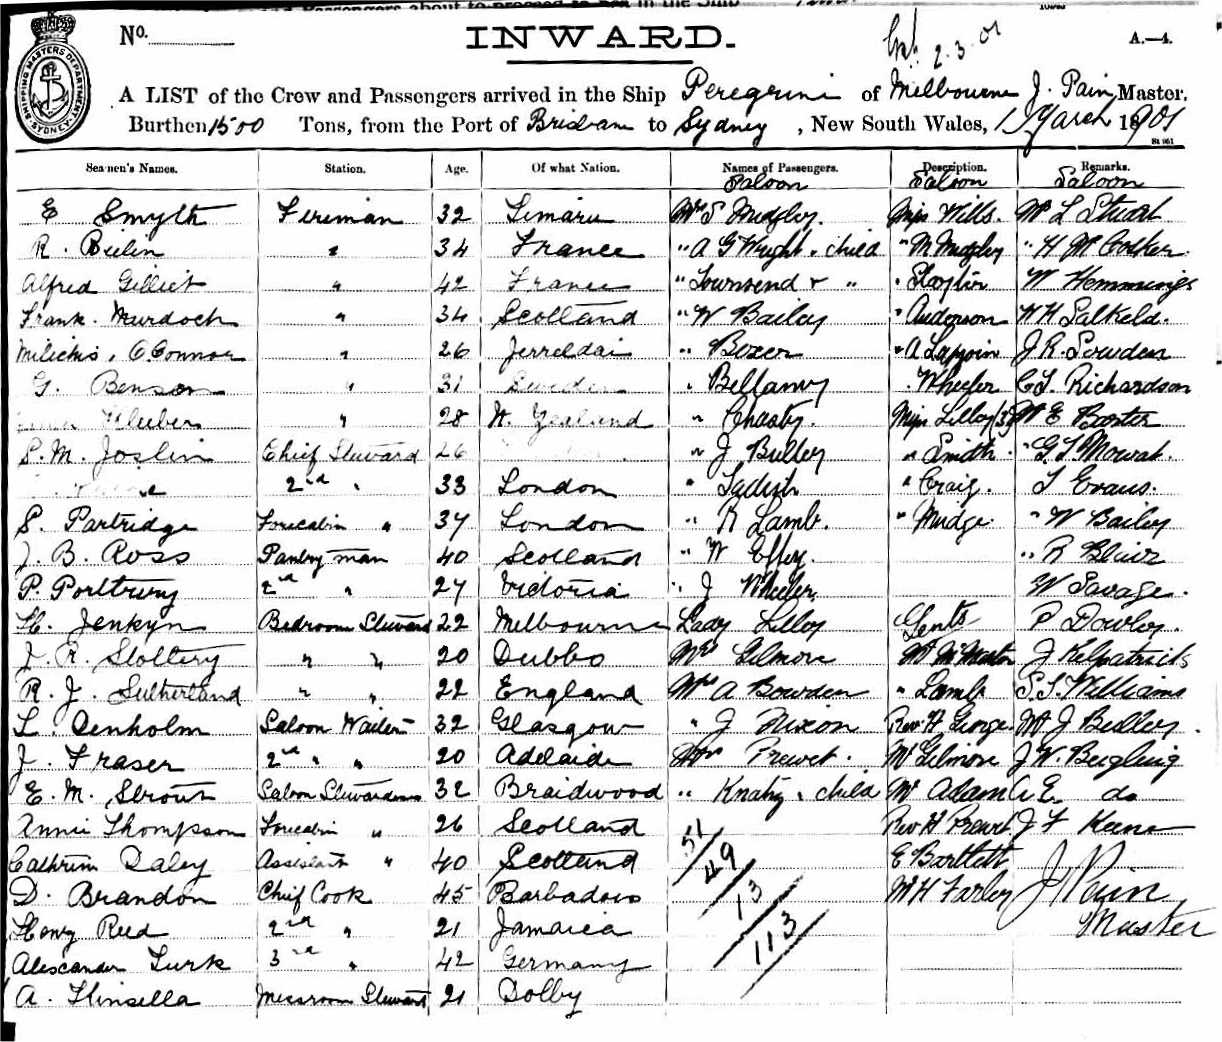 No.
INWARD.
2.3.01
A.—4.
SHIPPING MASTERS DEPARTMENT SYDNEY
A LIST of the Crew and Passengers arrived in the Ship Peregrine of Melbourne J. Pain, Master,
Burthen 1500 Tons, from the Port of Brisbane to Sydney, New South Wales, 1 March 1901
Seamen's Names. Station. Age. Of what Nation. Names of Passengers. Description. Remarks.
Saloon Saloon Saloon
E Smyth Fireman 32 Timaru Mrs S Mudgley. Miss Wills. Mr L Stuart
R. Beilin " 34 France " A G Wright & child " M Mudgley " H
Alfred Gilliet " 42 France " Townsend & " " W Hemmings
Frank Murdoch " 34 Scotland " W Bailey " Anderson W H Salkeld.
O'Connor " 26 " Boxer " A J. R. Sowden
G. Benson " 31 Sweden " Bellamy " Wheeler C. T. Richardson
Kleeber " 28 N. Zealand " Chasty. Miss Lilley Mr E
S. M. Joslin Chief Steward 26 " J Bulley " Smith. " G. T. Mowat.
2nd " 33 London " " Craig. T Evans.
S. Partridge Forecabin " 37 London " R Lamb. " Mudge. " W Bailey
J. B. Ross Pantryman 40 Scotland " W " R
P. 2nd " 27 Victoria " J Wheeler. W Savage.
H. Jenkyn Bedroom Steward 22 Melbourne Lady Lilley Gents P Dowley.
J. R. Slottery " " 20 Dubbo Mrs Gilmore Mr McMaster J Kilpatrick
R. J. Sutherland " " 22 England Mrs A Bowden " Lamb S. T. Williams
L. Denholm Saloon Waiter 32 Glasgow " J Nixon Rev H George Mr J Bedley.
J. Fraser 2nd " " 20 Adelaide Mrs Prewet. Mr Gilmore J. W.
E. M. Strout Saloon Stewardess 32 Braidwood " & child Mr Adam A E. do
Annie Thompson Forecabin " 26 Scotland 51 Rev H J F Keene
Cathrine Daley Assistant " 40 Scotland 49 E Bartlett J Pain
D. Brandon Chief Cook 45 Barbados 13 Mr H Farley Master
Henry Reed 2nd " 21 Jamaica 113
Alexander Turk 3rd " 42 Germany
A. Messroom Steward 21 Dolby